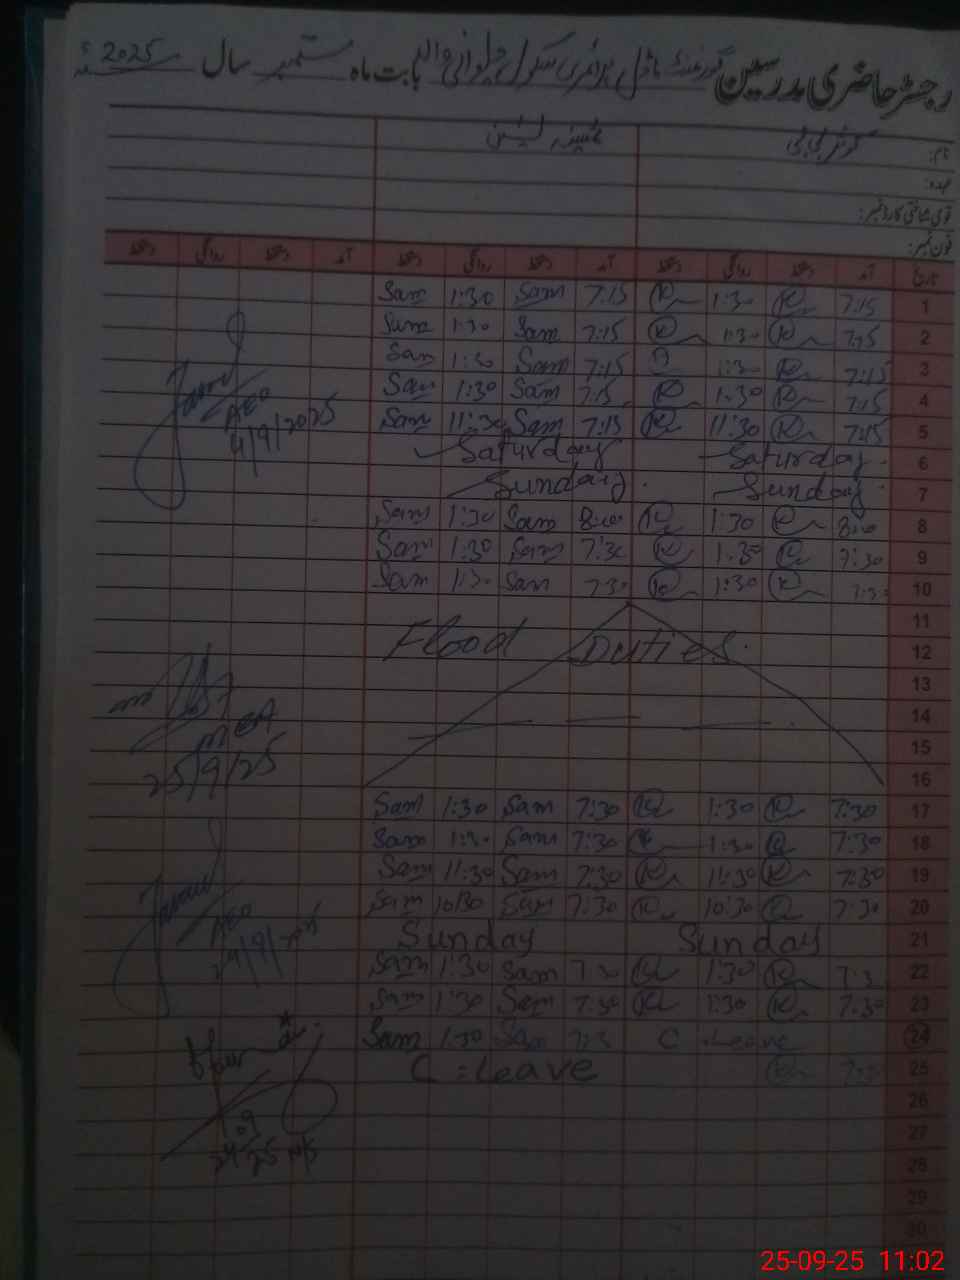 رجسٹر حاضری مدرسین گورنمنٹ ماڈل پرائمری سکول بابت ماہ ستمبر سال 2025ء
نام: کوثر بی بی
عہدہ:
قومی شناختی کارڈ نمبر:
فون نمبر:
تاریخ آمد دستخط روانگی دستخط آمد دستخط روانگی دستخط آمد دستخط روانگی دستخط
1 7:15 R 1:30 R 7:15 Sam 1:30 Sam
2 7:15 R 1:30 R 7:15 Sam 1:30 Sam
3 7:15 R 1:30 7:15 Sam 1:30 Sam
4 7:15 R 1:30 R 7:15 Sam 1:30 Sam
5 7:15 R 11:30 R 7:15 Sam 11:30 Sam
6 Saturday Saturday
7 Sunday Sunday
8 8:00 R 1:30 R 8:00 Sam 1:30 Sam
9 7:30 R 1:30 R 7:30 Sam 1:30 Sam
10 7:30 R 1:30 R 7:30 Sam 1:30 Sam
11
12 Flood Duties
13
14
15
16
17 7:30 R 1:30 R 7:30 Sam 1:30 Sam
18 7:30 R 1:30 R 7:30 Sam 1:30 Sam
19 7:30 R 11:30 R 7:30 Sam 11:30 Sam
20 7:30 R 10:30 R 7:30 Sam 10:30 Sam
21 Sunday Sunday
22 7:30 R 1:30 R 7:30 Sam 1:30 Sam
23 7:30 R 1:30 R 7:30 Sam 1:30 Sam
24 C. Leave 7:30 Sam 1:30 Sam
25 7:30 R C. Leave
26
27
28
29
30
AEO
4/9/2025
MEA
25/9/25
AEO
25-09-25 11:02